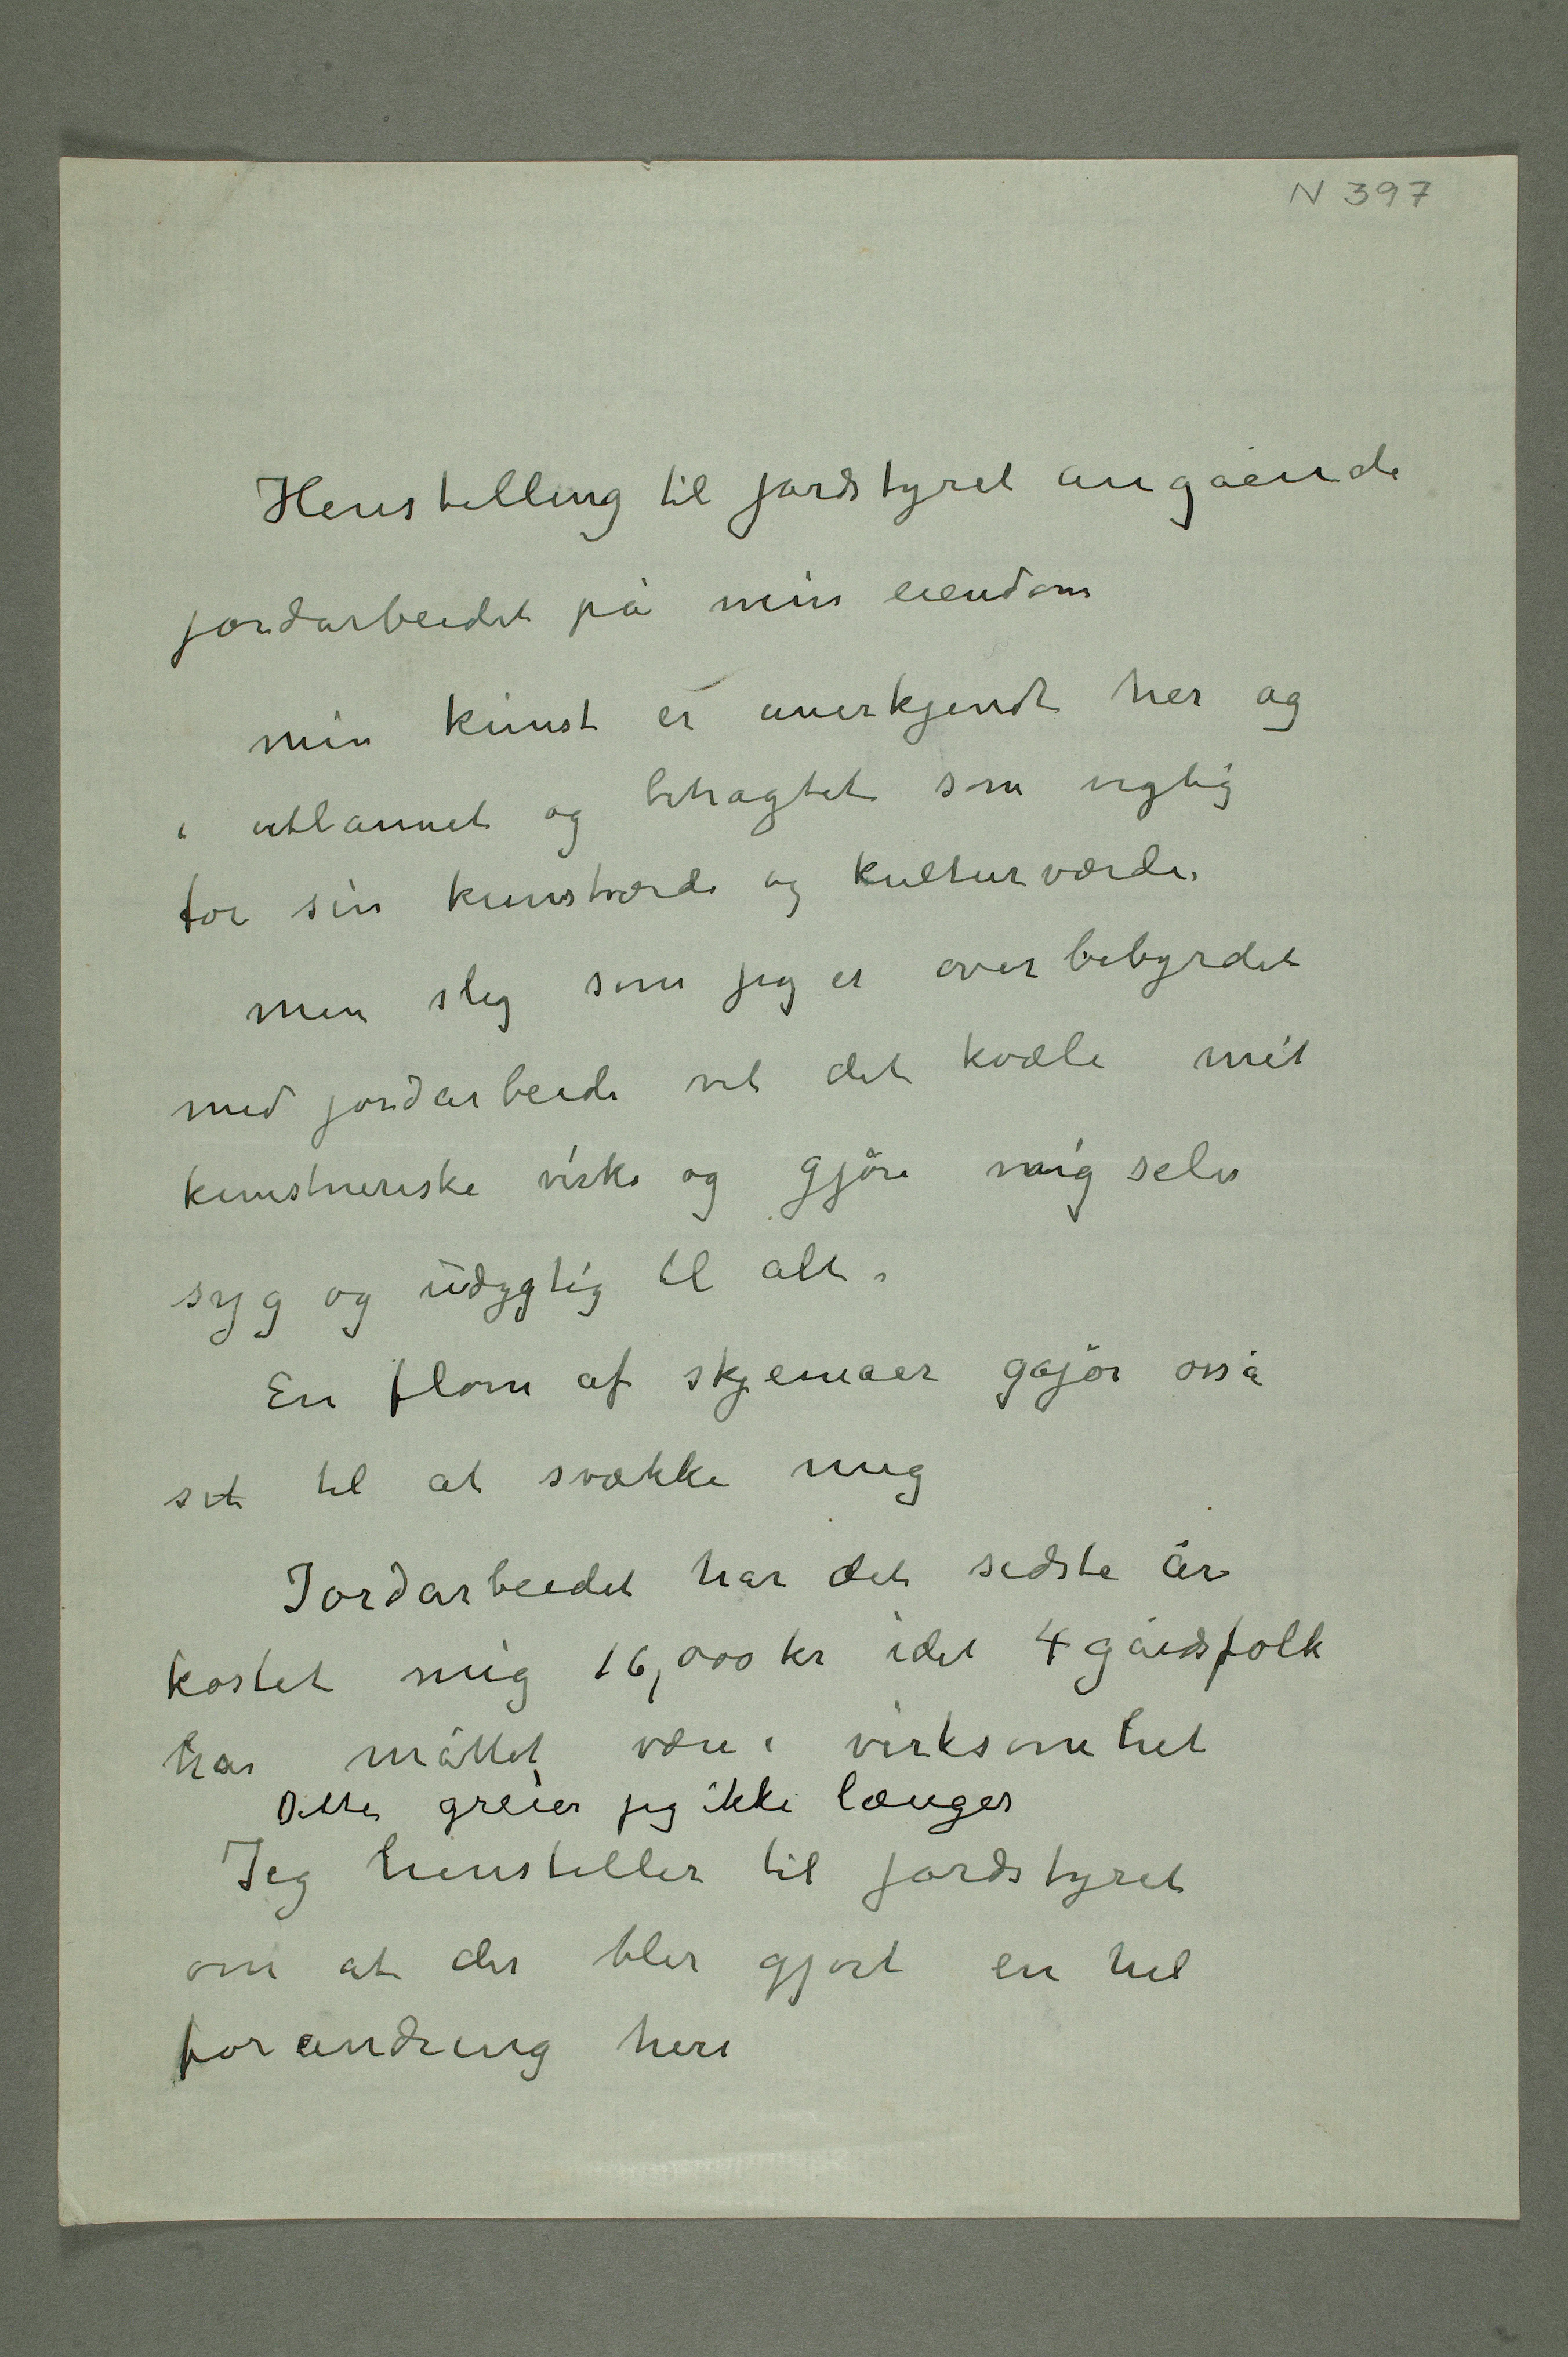 N 397
Henstilling til jordstyret angående
jordarbeidet på min eiendom
min kunst er anerkjendt her og
i utlannet og betragtet som vigtig
for sin kunstværdi og kulturværdi.
men slig som jeg er overbebyrdet
med jordarbeide vil det kvæle mit
kunstneriske virke og gjöre mig selv
syg og udygtig til alt.
En flom af skjemaer gajör osså
sit til at svække mig
Jordarbeidet har det sidste år
kostet mig 16,000 kr idet 4 gårdsfolk
har måttet være i virksomhet
Dette greier jeg ikke længer
Jeg henstiller til jordstyret
om at der blir gjort en hel
forandring heri